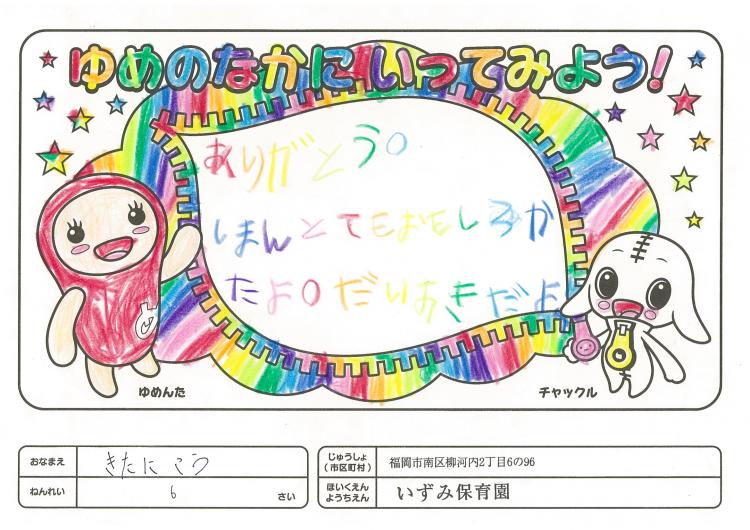 ゆめのなかにいってみよう!
ありがとう。
しまんとてもおもしろか
たよ。だいすきだよ
ゆめんた
チャックル
おなまえ きたに こう
ねんれい 6 さい
じゅうしょ
(市区町村)
福岡市南区柳河内2丁目6の96
ほいくえん
ようちえん
いずみ保育園